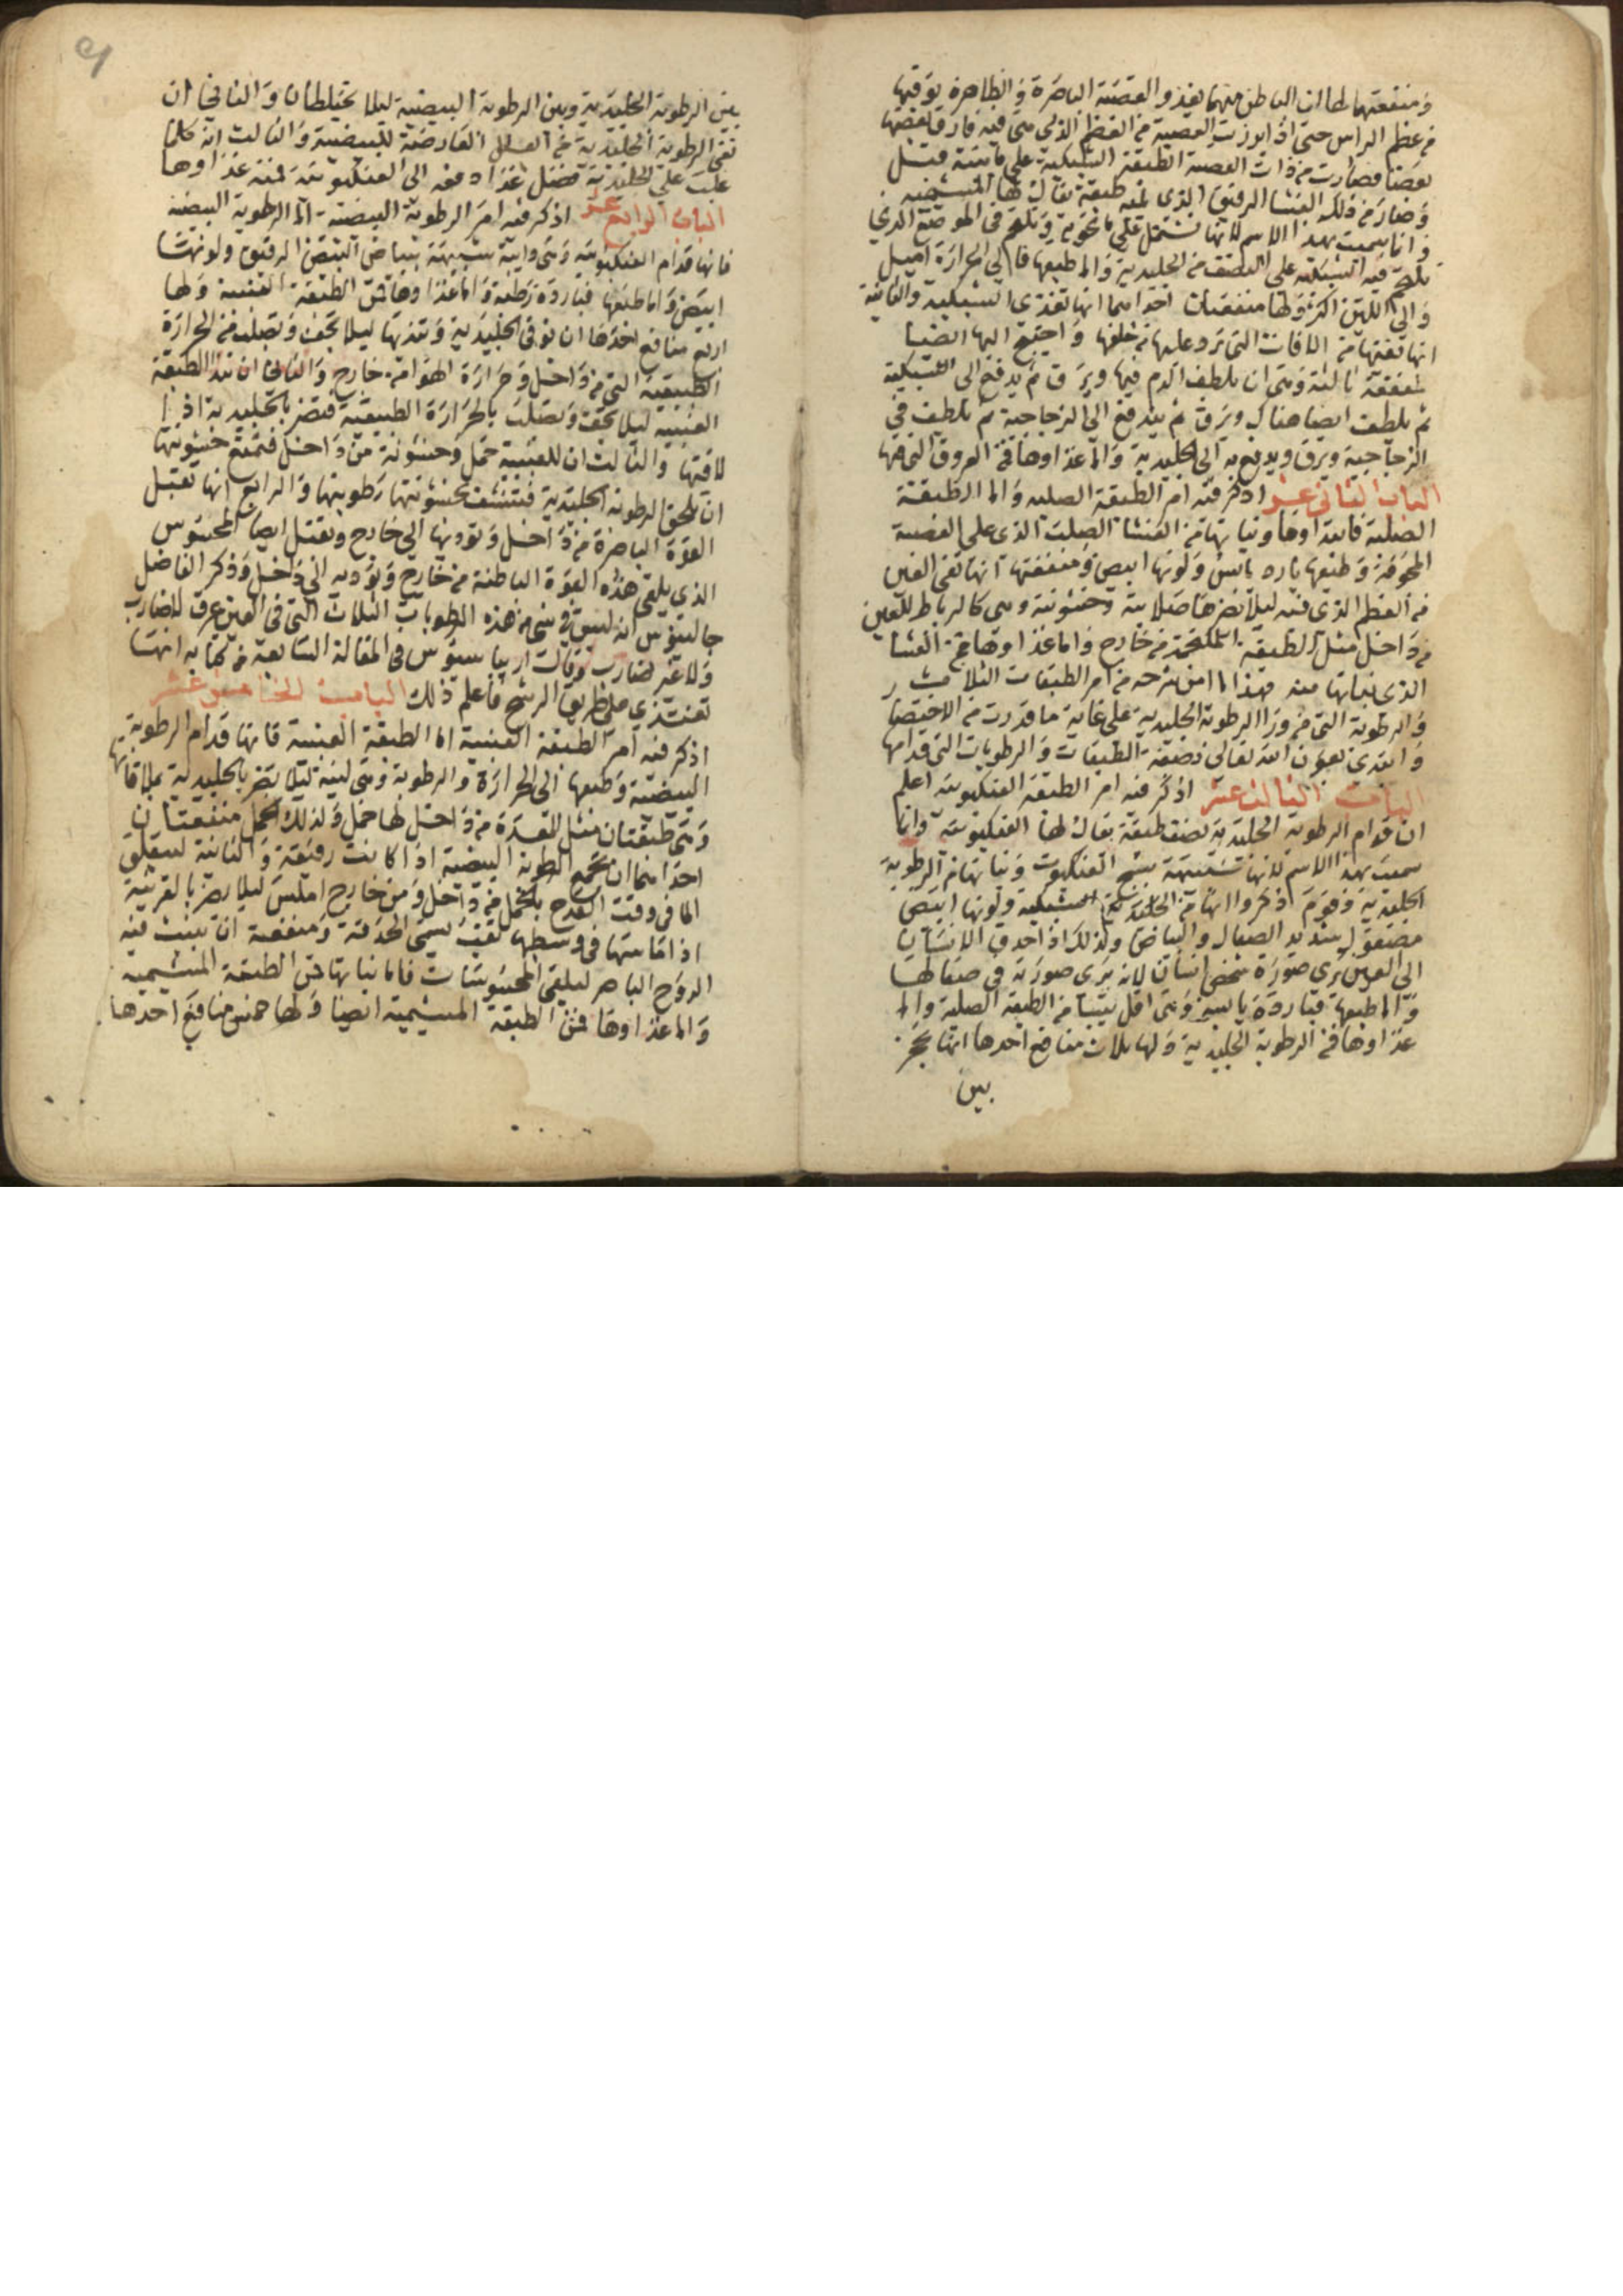 ومنفعتهما اما ان الباطن منهما يغذو العصبة الباصرة والظاهرة يوقيها
من عظم الراس حتى اذا برزت العصبة من العظم الذي هي فيه فارق بعضها
بعضا فصارت من ذات العصبة الطبقة الشبكية على ما بينته قبل
وصار من ذلك الغشا الرقيق الذي يلفه طبقة يقال لها المشيمية
وانما سميت بهذا الاسم لانها تشتمل على ما تحويه وتلتحم في الموضع الذي
تلتحم فيه الشبكية على النصف من الجليدية واما طبعها فالى الحرارة اميل
والى اللين اكثر ولها منفعتان احداهما انها تغذي الشبكية والثانية
انها تقيها من الافات التي ترد عليها من خلفها واحتيج اليها ايضا
لمنفعة ثالثة وهي ان يلطف الدم فيها ويرق ثم يدفع الى الشبكية
ثم يلطف ايضا هناك ويرق ثم يندفع الى الزجاجية ثم يلطف في
الزجاجية ويرق ويدفع به الى الجليدية واما غذاوها فمن العروق التي فيها
الباب الثاني عشر اذكر فيه امر الطبقة الصلبه واما الطبقة
الصلبة فابتداوها ونباتها من الغشا الصلب الذي على العصبة
المجوفة وطبعها بارد يابس ولونها ابيض ومنفعتها انها تقي العين
من العظم الذي فيه ليلا يضرها صلابته وخشونته وهي كالرباط للعين
من داخل مثل الطبقة الملتحمة من خارج واما غذاوها فمن الغشا
الذي نباتها منه فهذا ما امن شرحه من امر الطبقات الثلاث
والرطوبة التي من ورا الرطوبة الجليدية على غاية ما قدرت من الاختصار
وابتدى بعون الله تعالى بصفة الطبقات والرطوبات التي قدامها
الباب الثالث عشر اذكر فيه امر الطبقة العنكبوتيه اعلم
ان قدام الرطوبة الجليدية نصف طبقة يقال لها العنكبوتية وانما
سميت بهذا الاسم لانها شبيهة بنسج العنكبوت ونباتها من الرطوبة
الجليدية وقوم ذكروا انها من الطبقة الشبكية ولونها ابيض
مصقول شديد الصقال والبياض ولذلك اذا احدق الانسان
الى العين يرى صورة شخص انسان لانه يرى صورته في صقالها
واما طبعها فباردة يابسة وهي اقل يبسا من الطبقة الصلبة واما
غذاوها فمن الرطوبة الجليدية ولها ثلاث منافع احدها انها تحجز
بين
بين الرطوبة الجليدية وبين الرطوبة البيضية ليلا يختلطان والثاني ان
تقي الرطوبة الجليدية من العلل العارضة للبيضية والثالث انه كلما
غلب على الجليدية فضل غذاء دفعه الى العنكبوتية فمنه غذاوها
الباب الرابع عشر اذكر فيه امر الرطوبة البيضية اما الرطوبة البيضيه
فانها قدام العنكبوتيه وهي دايبة شبيهة ببياض البيض الرقيق ولونها
ابيض واما طبعها فباردة رطبة واما غذاوها فمن الطبقة العنبية ولها
اربع منافع احدها ان توقي الجليدية وتنديها ليلا تجف وتصلب من الحرارة
الطبيعية التي من داخل وحرارة الهوا من خارج والثاني ان تندي الطبقة
العنبية ليلا تجف وتصلب بالحرارة الطبيعية فتضر بالجليدية اذا
لاقتها والثالث ان للعنبية خمل وخشونة من داخل فتمنع خشونتها
ان تلحق الرطوبة الجليدية فتنشف بخشونتها رطوبتها والرابع انها تقبل
القوة الباصرة من داخل وتوديها الى خارج وتقبل ايضا المحسوس
الذي يلقى هذه القوة الباطنة من خارج وتوديه الى داخل وذكر الفاضل
جالينوس انه ليس في شي من هذه الرطوبات الثلاث التي في العين عرق لا ضارب
ولا غير ضارب وقال اريباسيوس في المقالة السابعة من كتابه انها
تغتذي على طريق الرشح فاعلم ذلك الباب الخامس عشر
اذكر فيه امر الطبقة العنبية اما الطبقة العنبية فانها قدام الرطوبة
البيضية وطبعها الى الحرارة والرطوبة وهي لينة ليلا تضر بالجليدية بملاقاتها
وهي طبقتان مثل المعدة من داخل لها خمل ولذلك الخمل منفعتان
احداهما ان تجمع الرطوبة البيضية اذا كانت رقيقة والثانية ليتعلق
الما في وقت القدح بالخمل من داخل ومن خارج املس ليلا يضر بالقرنية
اذا ماستها في وسطها ثقب يسمى الحدقة ومنفعته ان ينبث فيه
الروح الباصر ليلقى المحسوسات فاما نباتها فمن الطبقة المشيمية
واما غذاوها فمن الطبقة المشيمية ايضا ولها خمس منافع احدها